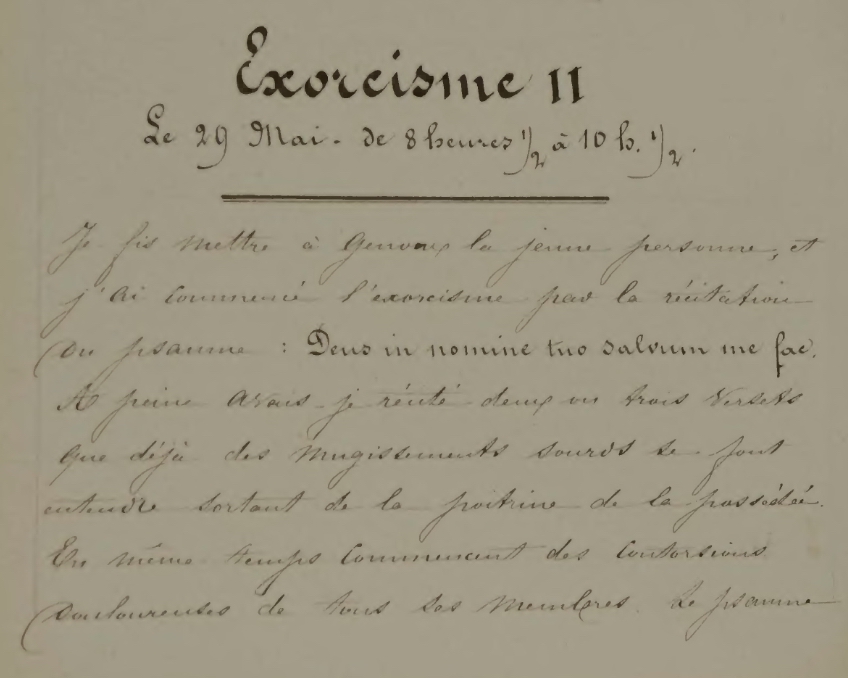 Exorcisme II
Le 29 Mai - de 8 heures 1/2 à 10 h. 1/2.
Je fis mettre à genoux la jeune personne, et
j'ai commencé l'exorcisme par la récitation
du psaume : Deus in nomine tuo salvum me fac.
A peine avais-je récité deux ou trois versets
que déjà des mugissements sourds se font
entendre sortant de la poitrine de la possédée.
En même temps commencent des contorsions
douloureuses de tous ses membres. Le psaume